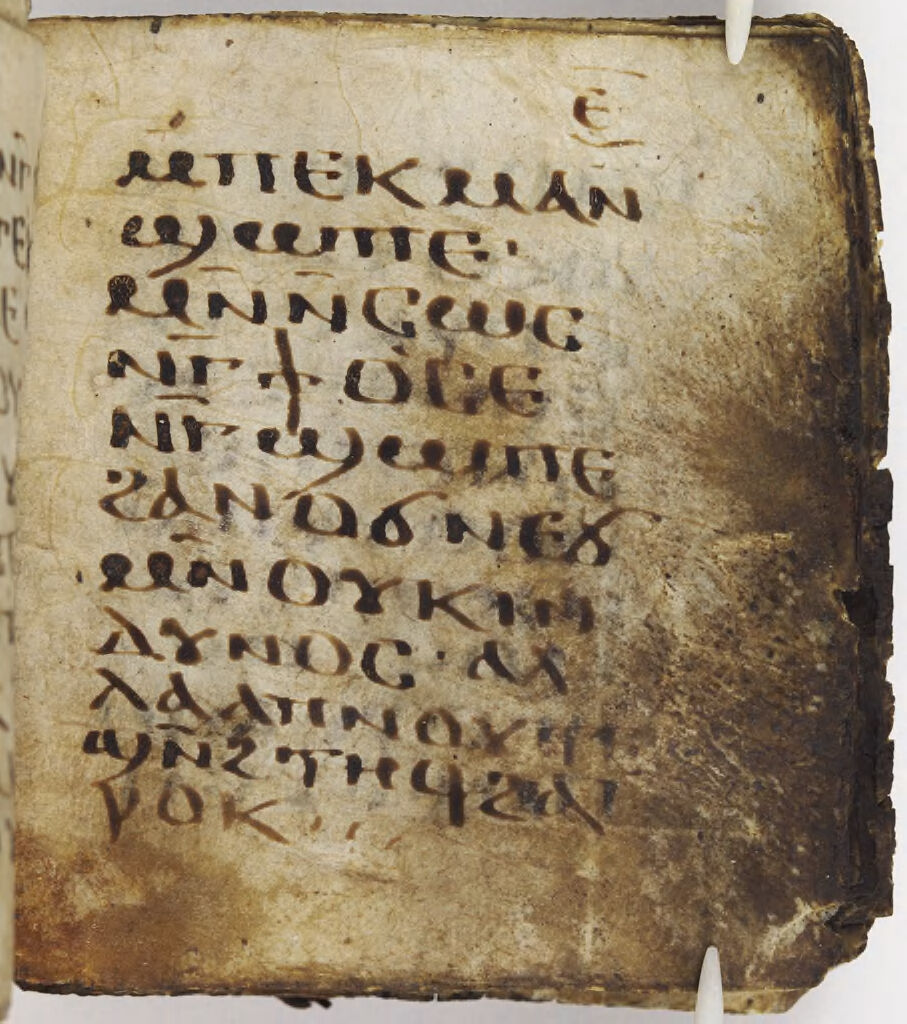 ⲉ̅
ⲙ̅ⲡⲉⲕⲙⲁⲛ̅
ϣⲱⲡⲉ·
ⲙⲛ̅ⲛ̅ⲥⲱⲥ
ⲛⲅ̅ϯⲟⲥⲉ
ⲛⲅ̅ϣⲱⲡⲉ
ϩⲁⲛⲟϭⲛⲉϭ
ⲙⲛ̅ⲟⲩⲕⲓⲛ
ⲇⲩⲛⲟⲥ· ⲁⲗ
ⲗⲁⲁⲡⲛⲟⲩⲧⲉ
ϣⲛ̅ϩⲧⲏϥϩⲁ
ⲣⲟⲕ